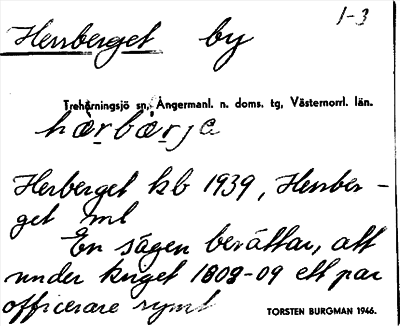 1-3
Herrberget by
Trehörningsjö sn, Ångermanl. n. doms. tg, Västernorrl. län.
hä̀rbä́rje
Herberget kb 1939, Herrber-
get ml
En sägen berättar, att
under kriget 1808-09 ett par
officerare rymt
TORSTEN BURGMAN 1946.